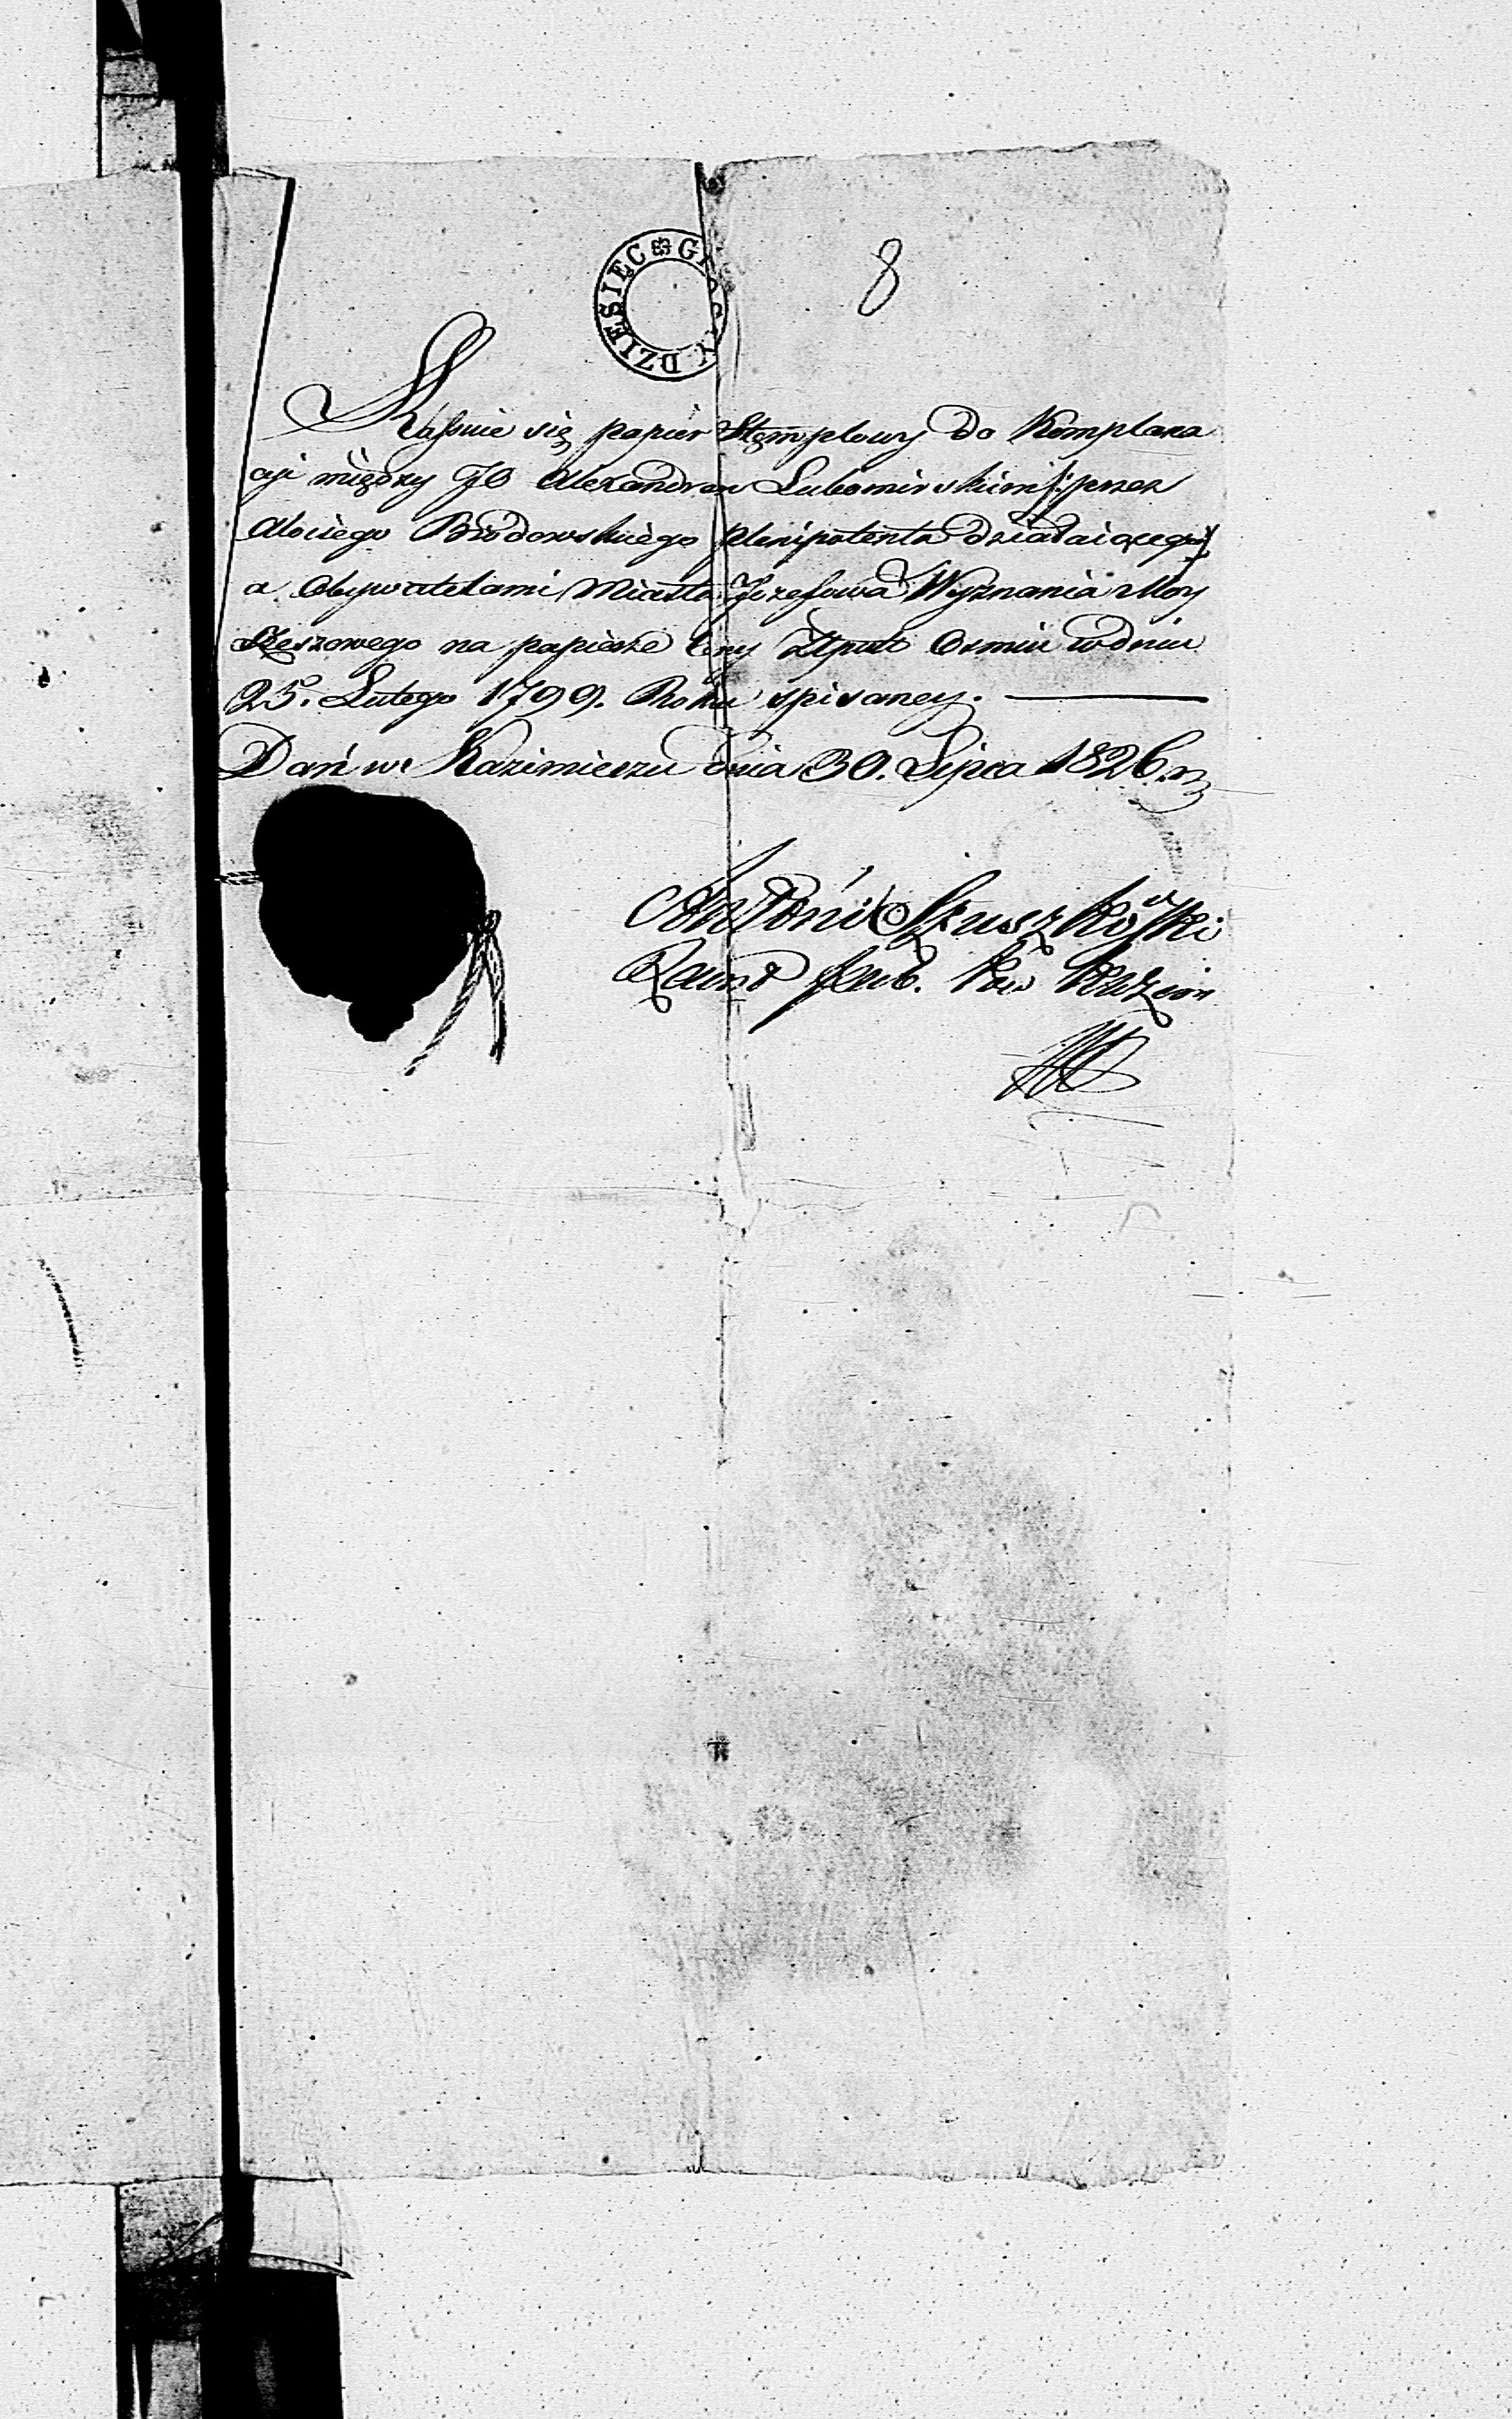 DZIESIĘC GROSZY
8
Kassuie się papier Stęmplowy do Komplana
cyi między JO Alexandrem Lubomirskim /: przez
Aloiego Brodowskiego plenipotenta działaiącego :/
a Obywatelami Miasta Jozefowa Wyznania Moy
żeszowego na papierze Ceny Złpol Osmiu w dniu
25. Lutego 1799. Roku spisaney.
Dań w Kazimierzu dnia 30. Lipca 1826 r.
Antoni